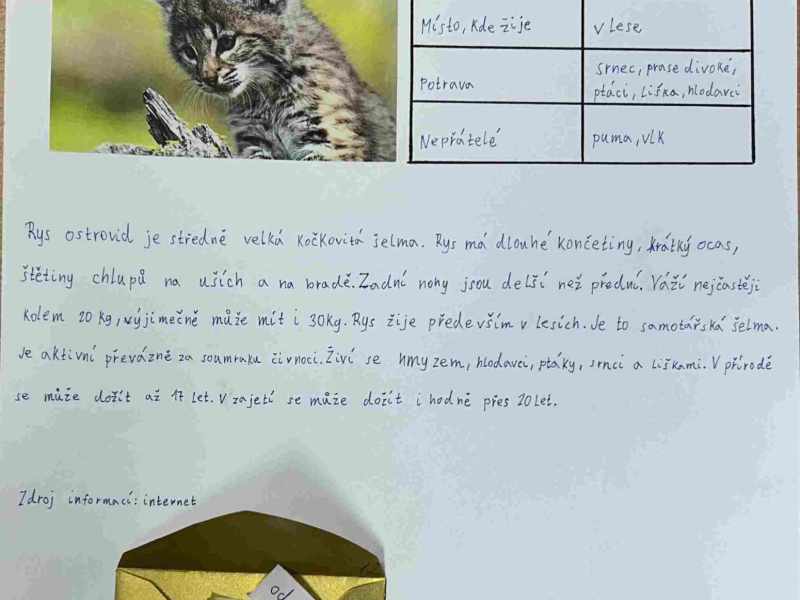 Místo, kde žije
v lese
Potrava
srnec, prase divoké,
ptáci, liška, hlodavci
Nepřátelé
puma, vlk
Rys ostrovid je středně velká kočkovitá šelma. Rys má dlouhé končetiny, krátký ocas,
štětiny chlupů na uších a na bradě. Zadní nohy jsou delší než přední. Váží nejčastěji
kolem 20 kg, výjimečně může mít i 30kg. Rys žije především v lesích. Je to samotářská šelma.
Je aktivní převážně za soumraku či v noci. Živí se hmyzem, hlodavci, ptáky, srnci a liškami. V přírodě
se může dožít až 17 let. V zajetí se může dožít i hodně přes 20 let.
Zdroj informací: internet
od